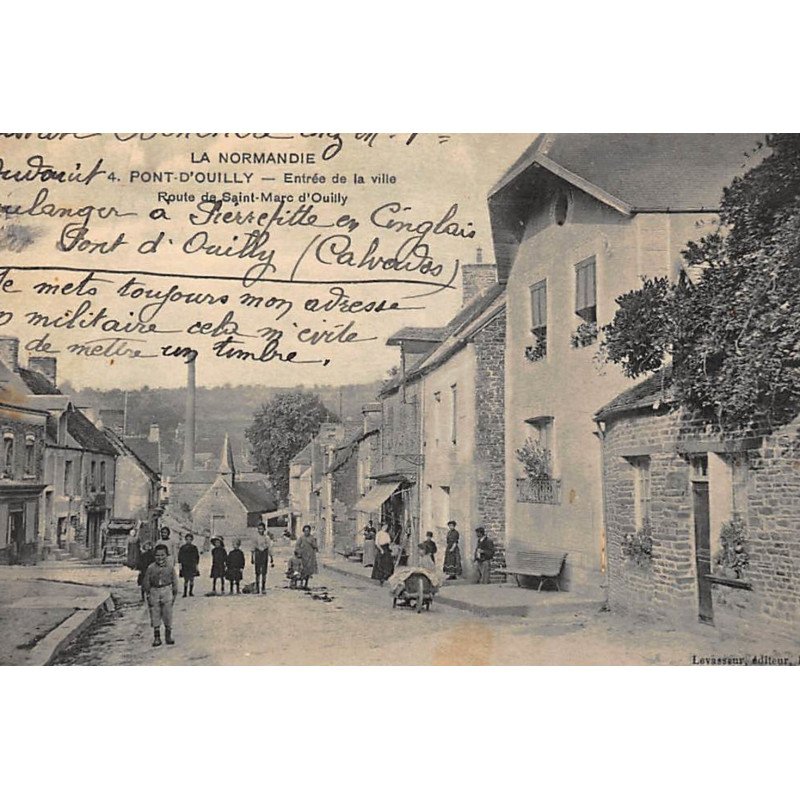 LA NORMANDIE
4. PONT-D'OUILLY — Entrée de la ville
Route de Saint-Marc d'Ouilly
boulanger a Pierrefitte en Cinglais
Pont d'Ouilly (Calvados)
Je mets toujours mon adresse
militaire cela m'évite
de mettre un timbre,
Levasseur, éditeur,